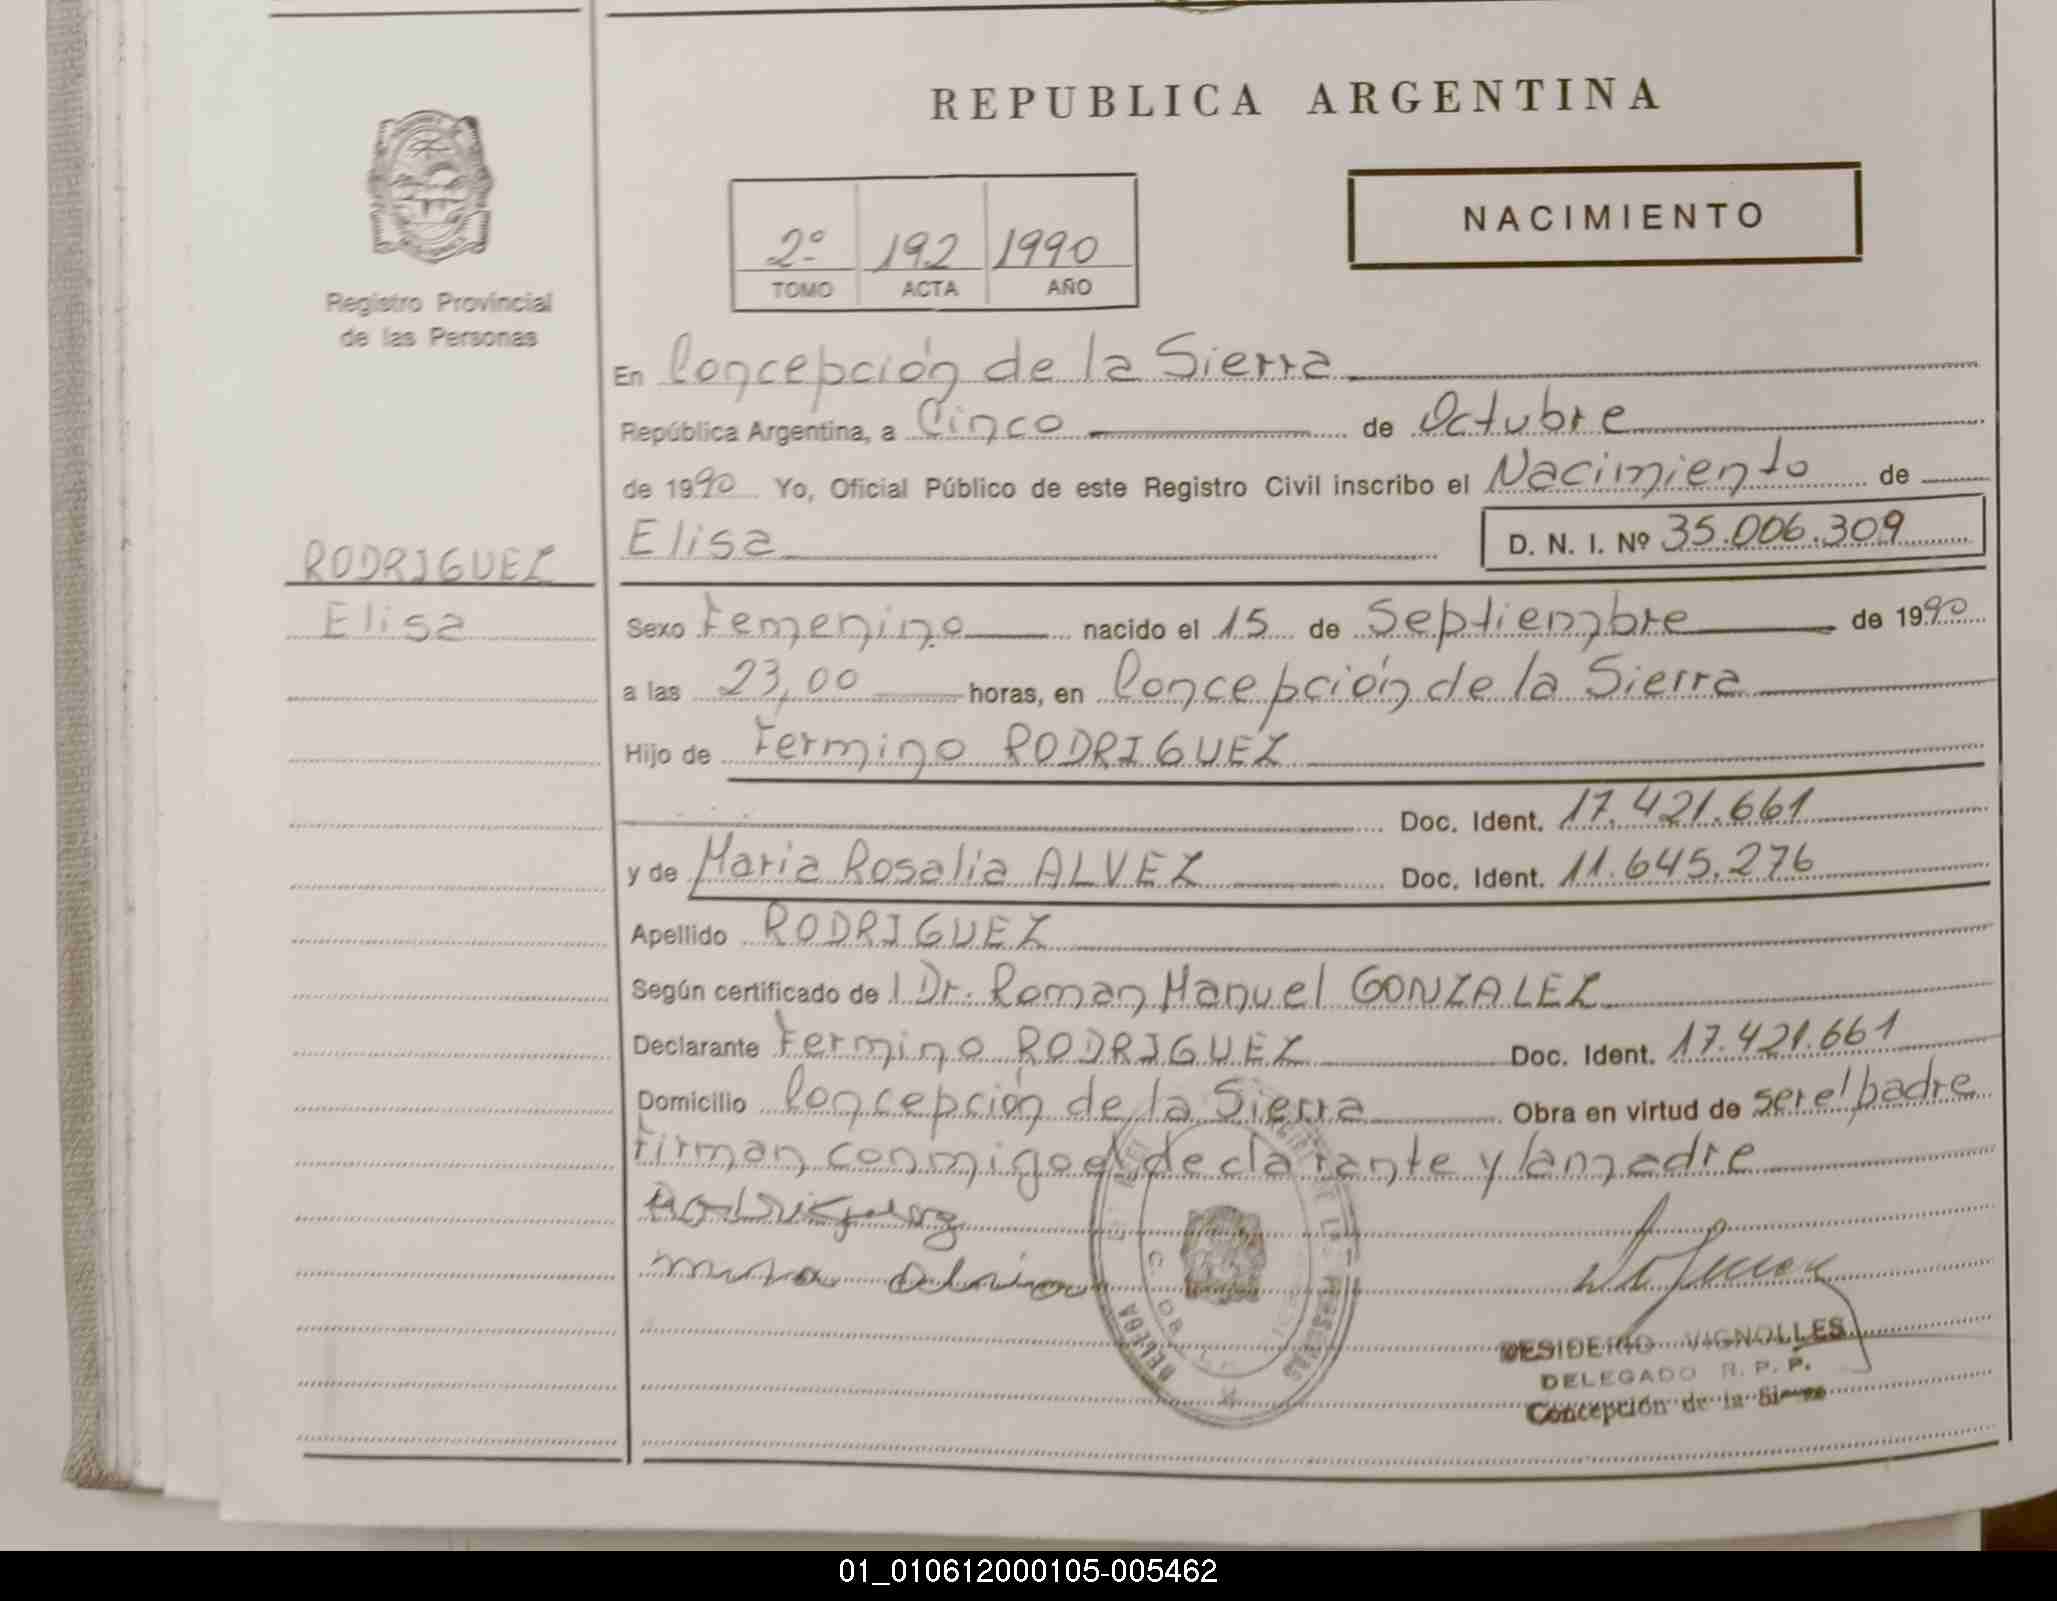 REPUBLICA ARGENTINA
NACIMIENTO
2º 192 1990
TOMO ACTA AÑO
Registro Provincial
de las Personas
En Concepción de la Sierra
República Argentina, a Cinco de Octubre
de 1990 Yo, Oficial Público de este Registro Civil inscribo el Nacimiento de
Elisa D. N. I. Nº 35.006.309
RODRIGUEZ
Elisa
Sexo Femenino nacido el 15 de Septiembre de 1990
a las 23,00 horas, en Concepción de la Sierra
Hijo de Fermino RODRIGUEZ
Doc. Ident. 17.421.661
y de Maria Rosalia ALVEZ Doc. Ident. 11.645.276
Apellido RODRIGUEZ
Según certificado de l Dr. Roman Manuel GONZALEZ
Declarante Fermino RODRIGUEZ Doc. Ident. 17.421.661
Domicilio Concepción de la Sierra Obra en virtud de ser el padre
Firman conmigo el declarante y la madre
DESIDERIO VIGNOLLES
DELEGADO R. P. P.
Concepción de la Sierra
01_010612000105-005462